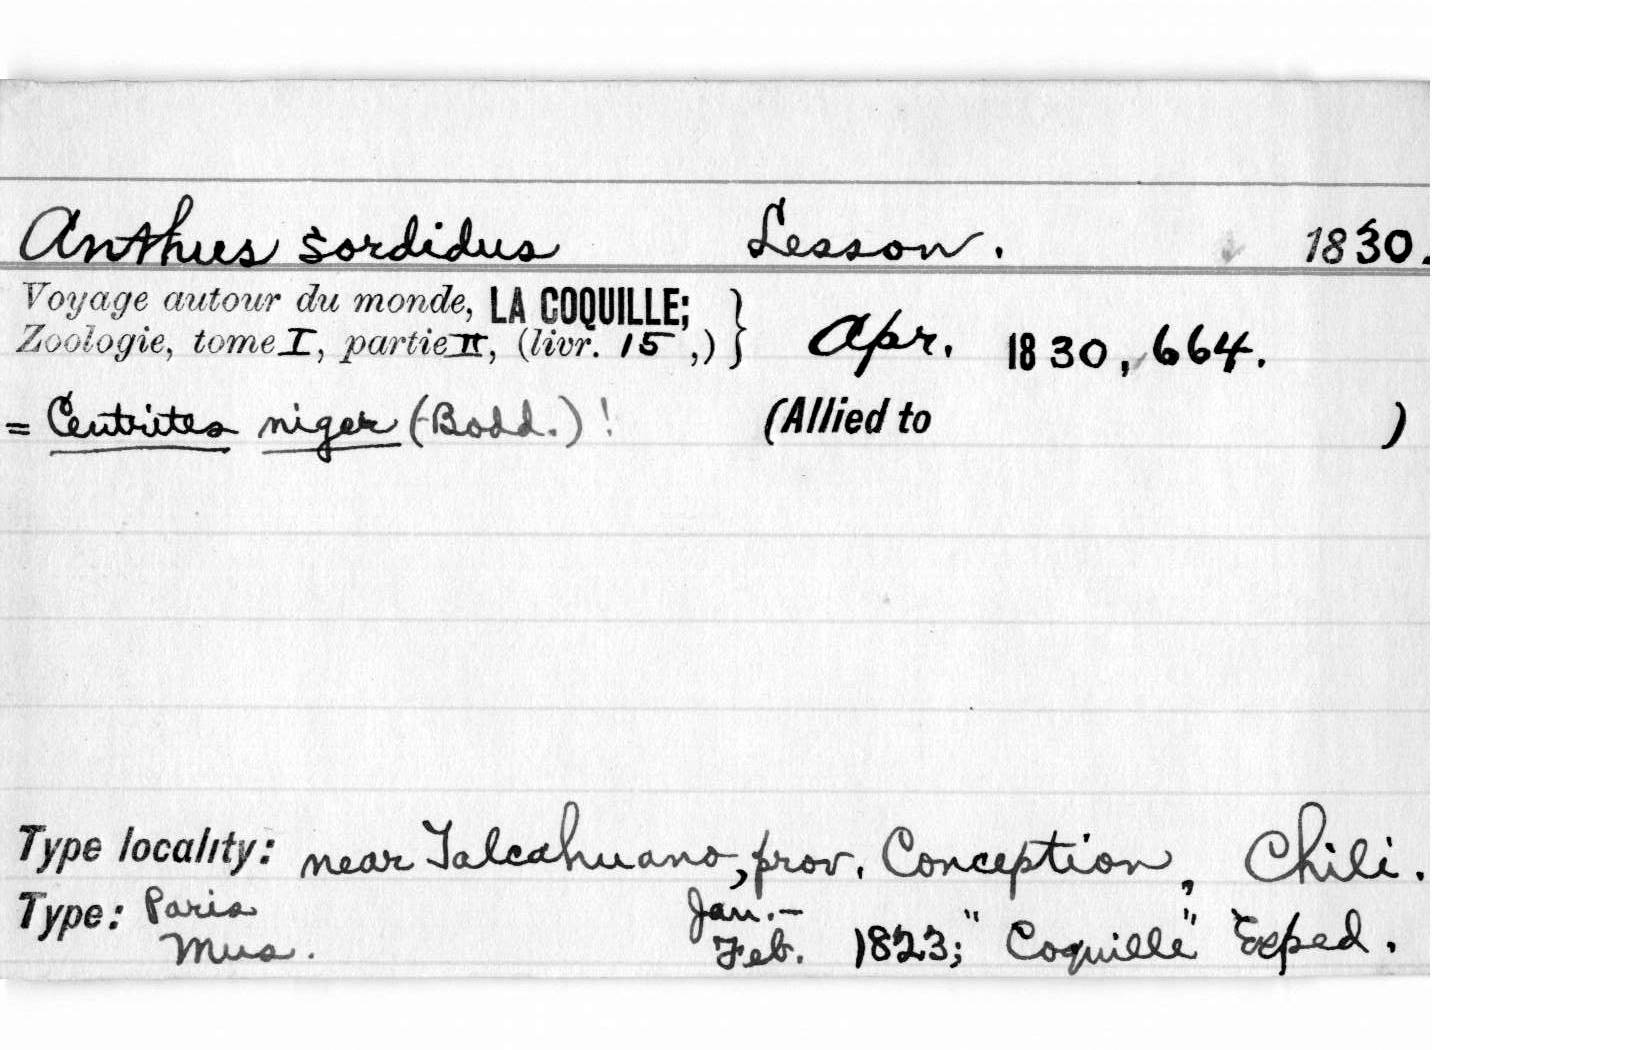 Anthus sordidus Lesson. 1830.
Voyage autour du monde, LA COQUILLE; }
Zoologie, tome I, partie II, (livr. 15 ,) Apr. 1830, 664.
= Centrites niger (Bodd.)! (Allied to )
Type locality: near Talcahuano, prov. Conception, Chili.
Type: Paris Jan.-
Mus. Feb. 1823; "Coquille" Exped.